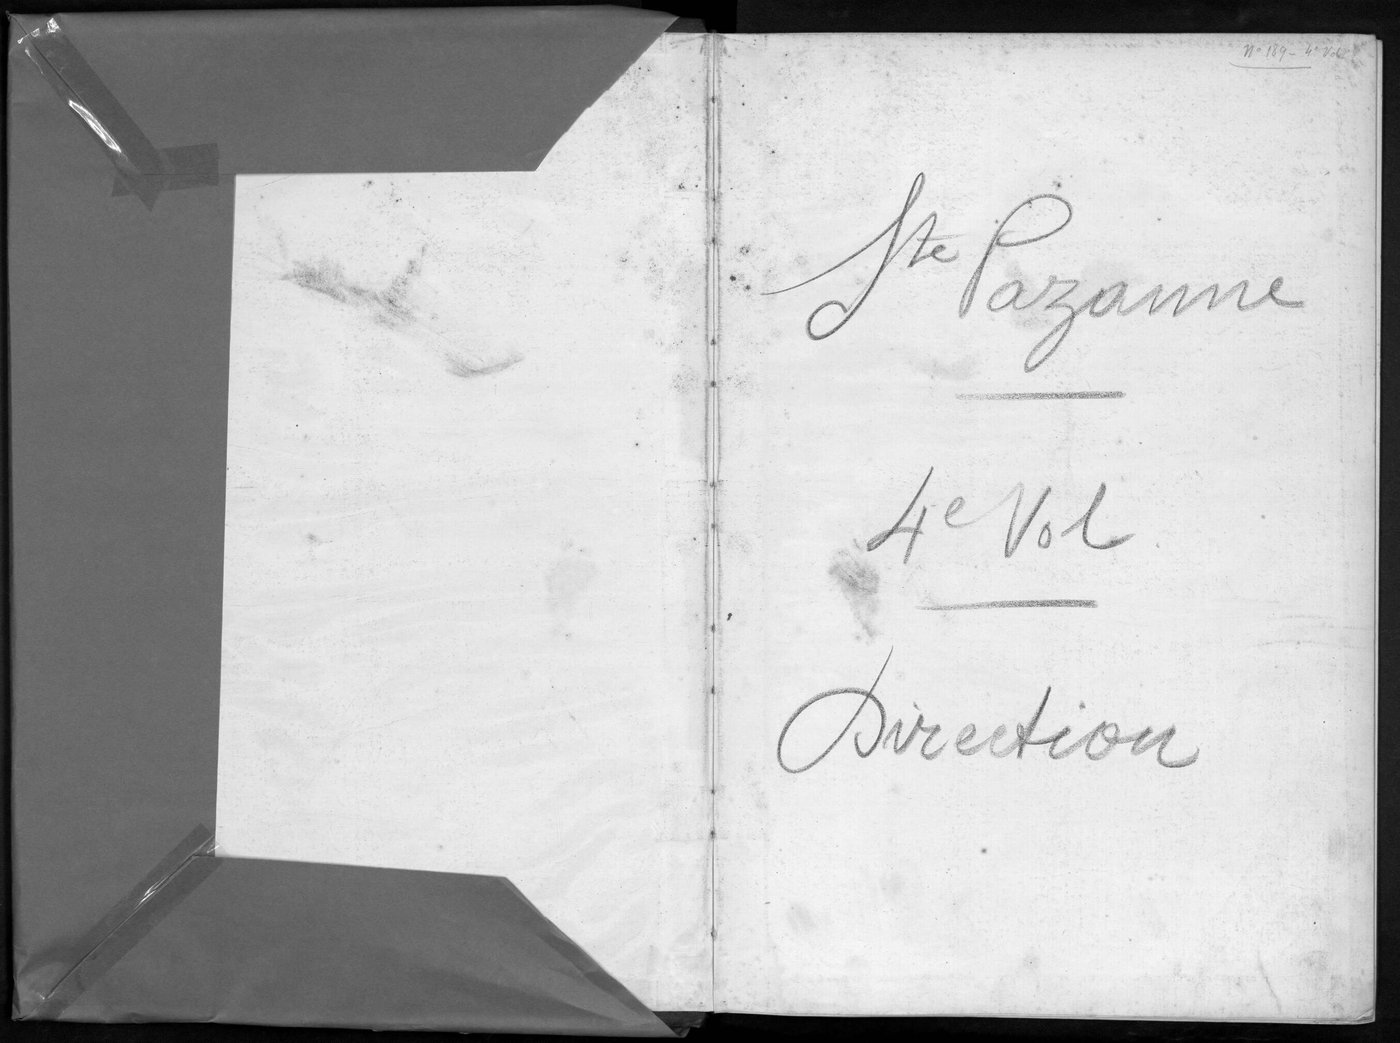 N° 189 - 4e Vol
Ste Pazanne
4e Vol
Direction